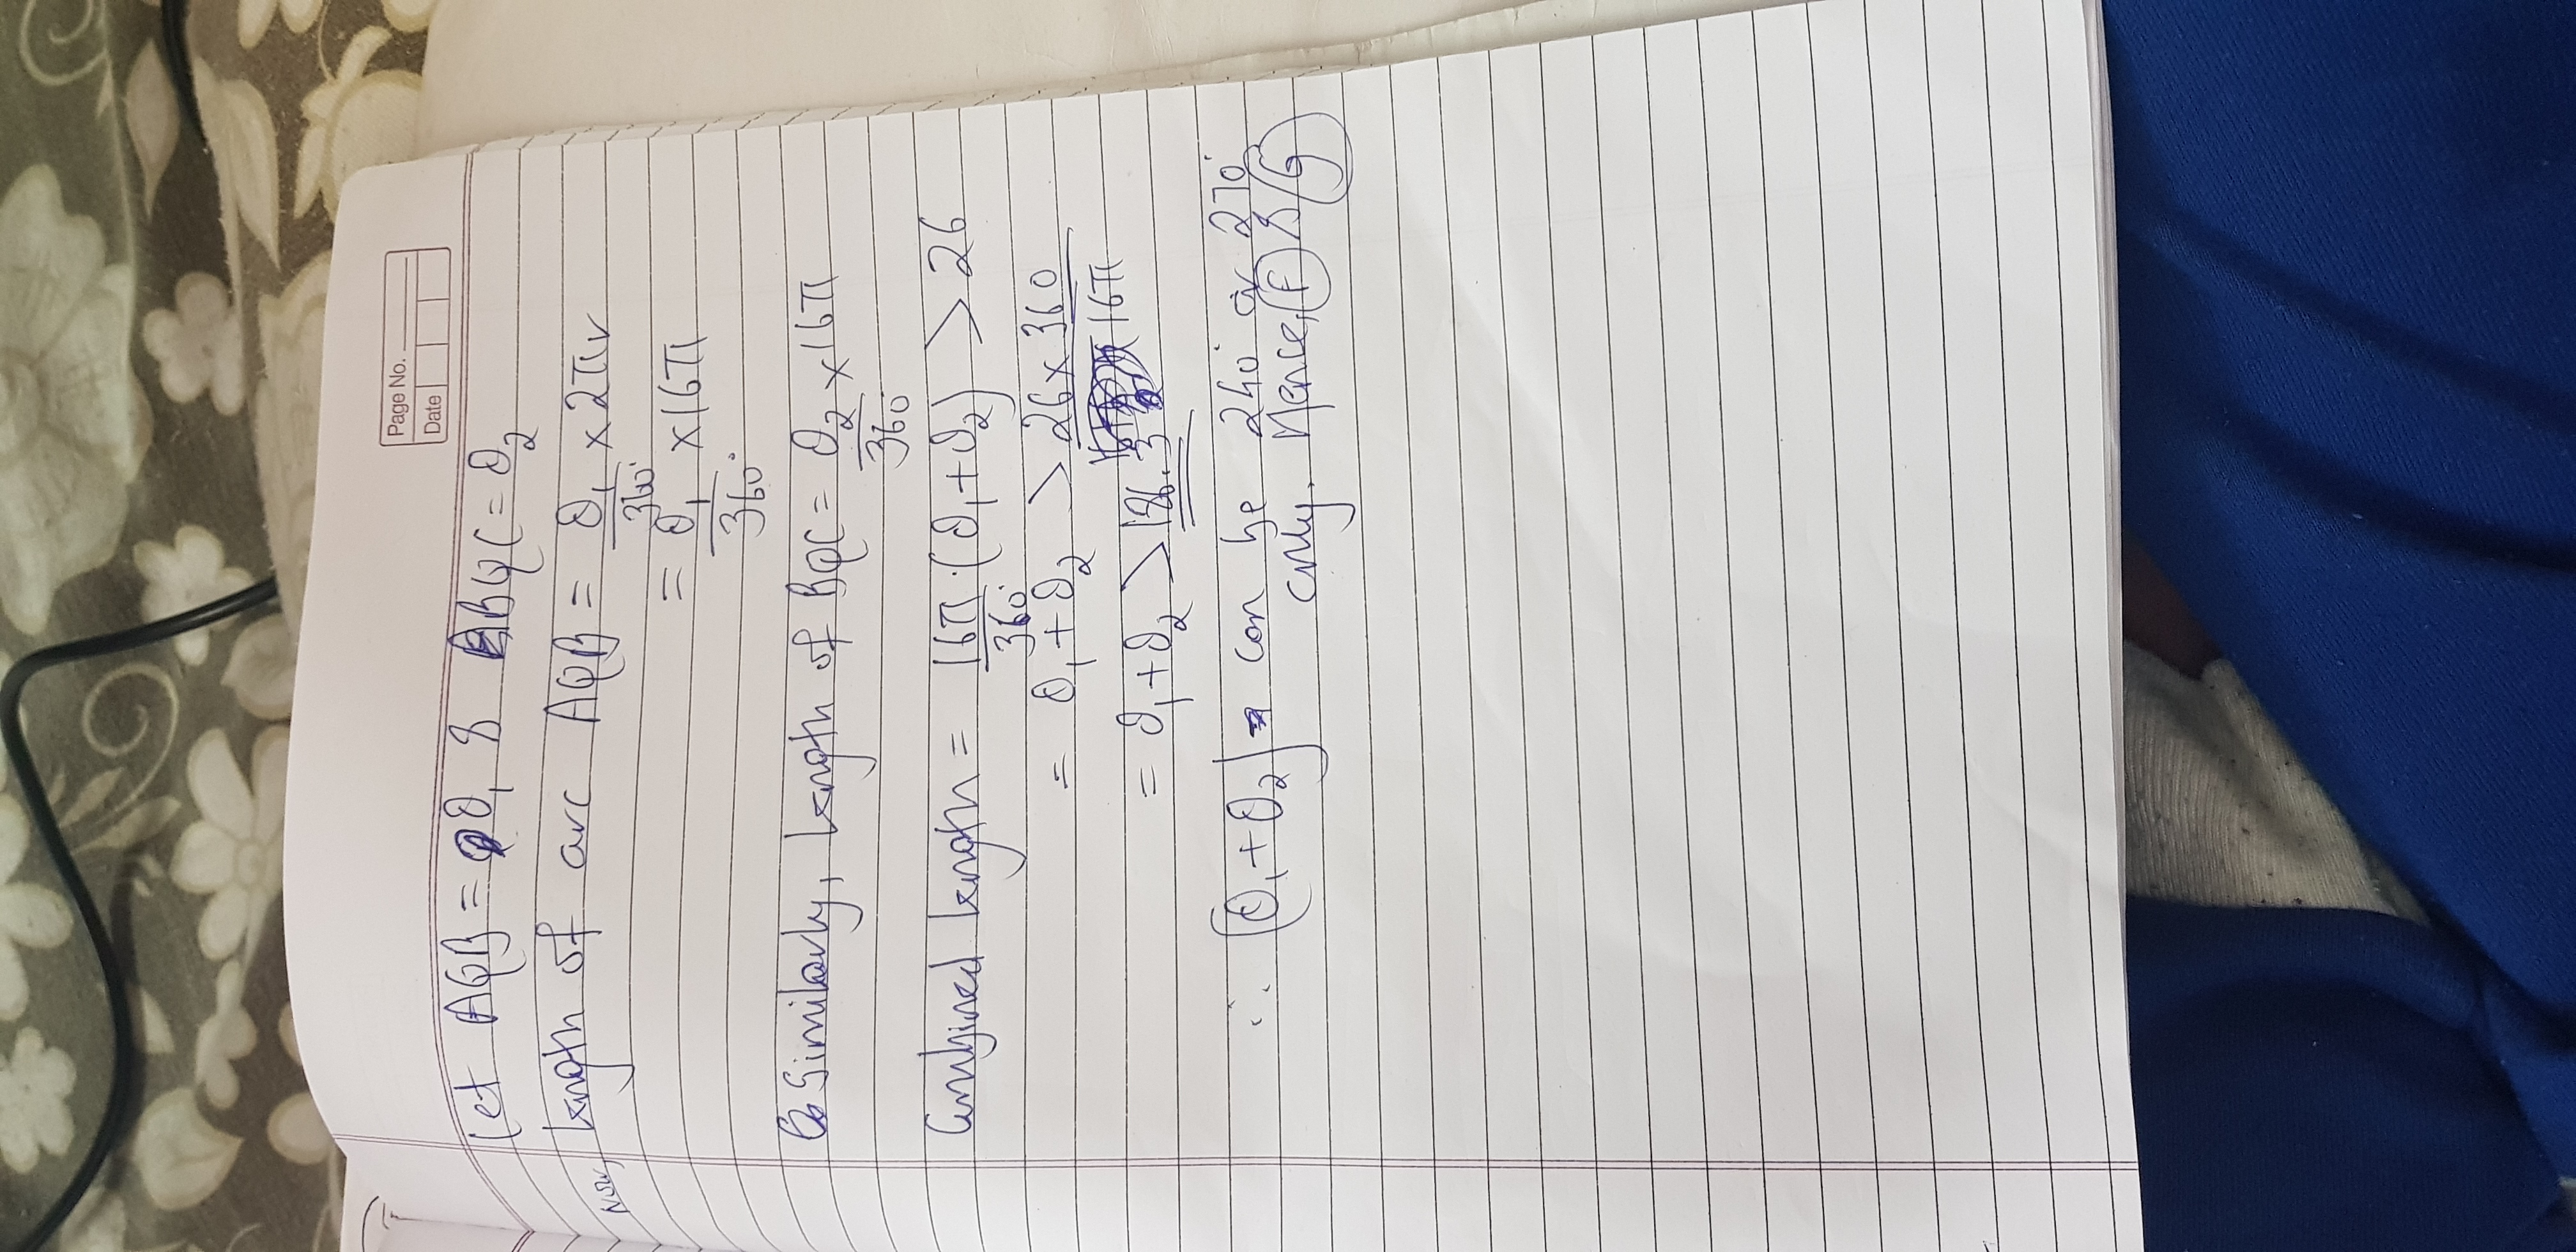 Page No.
Date
Let AQB = θ₁ & BQC = θ₂
Now, Length of arc AQB = θ₁/360° × 2πr
= θ₁/360° × 16π
Similarly, Length of BQC = θ₂/360 × 16π
Combined length = 16π/360° · (θ₁ + θ₂) > 26
= θ₁ + θ₂ > 26 × 360/16π
= θ₁ + θ₂ > 186.3
∴ (θ₁ + θ₂) can be 240° or 270°
only. Hence, F & G